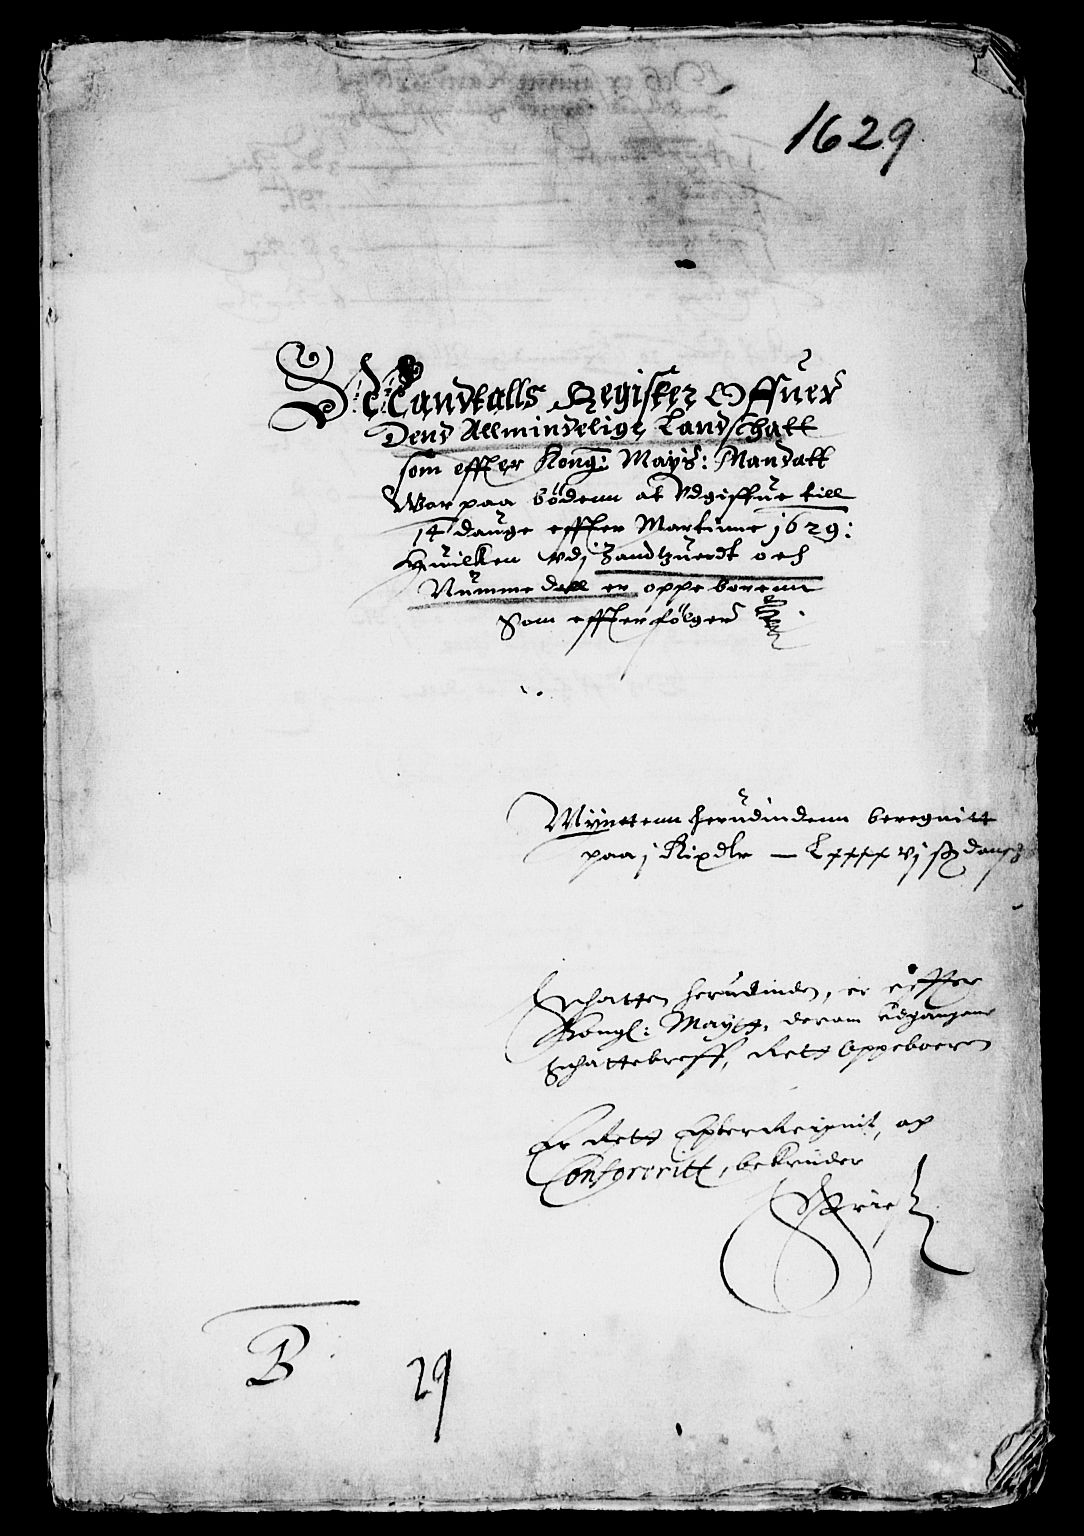 1629
Mandtalls Register Offuer
Dend Allmindelige Landschatt
som effter Kong: Mayts: Mandatt
War paa bödenn at Vdgiffue till
14 dauge effter Martinne 1629:
Huilken vdj Sandtzuerdt och
Nummedall er oppeborenn
Som effterfölger
Myntenn herudindenn beregnitt
paa j Rixdlr — Lxxxx vj sz dansch
Schatten herudinden, er effter
Kongl: Maytz, derom Udgangene
Schattebreff, Rett Oppeboeren
Er Rett Efter Reignit, och
Confereritt, bekender
B
29